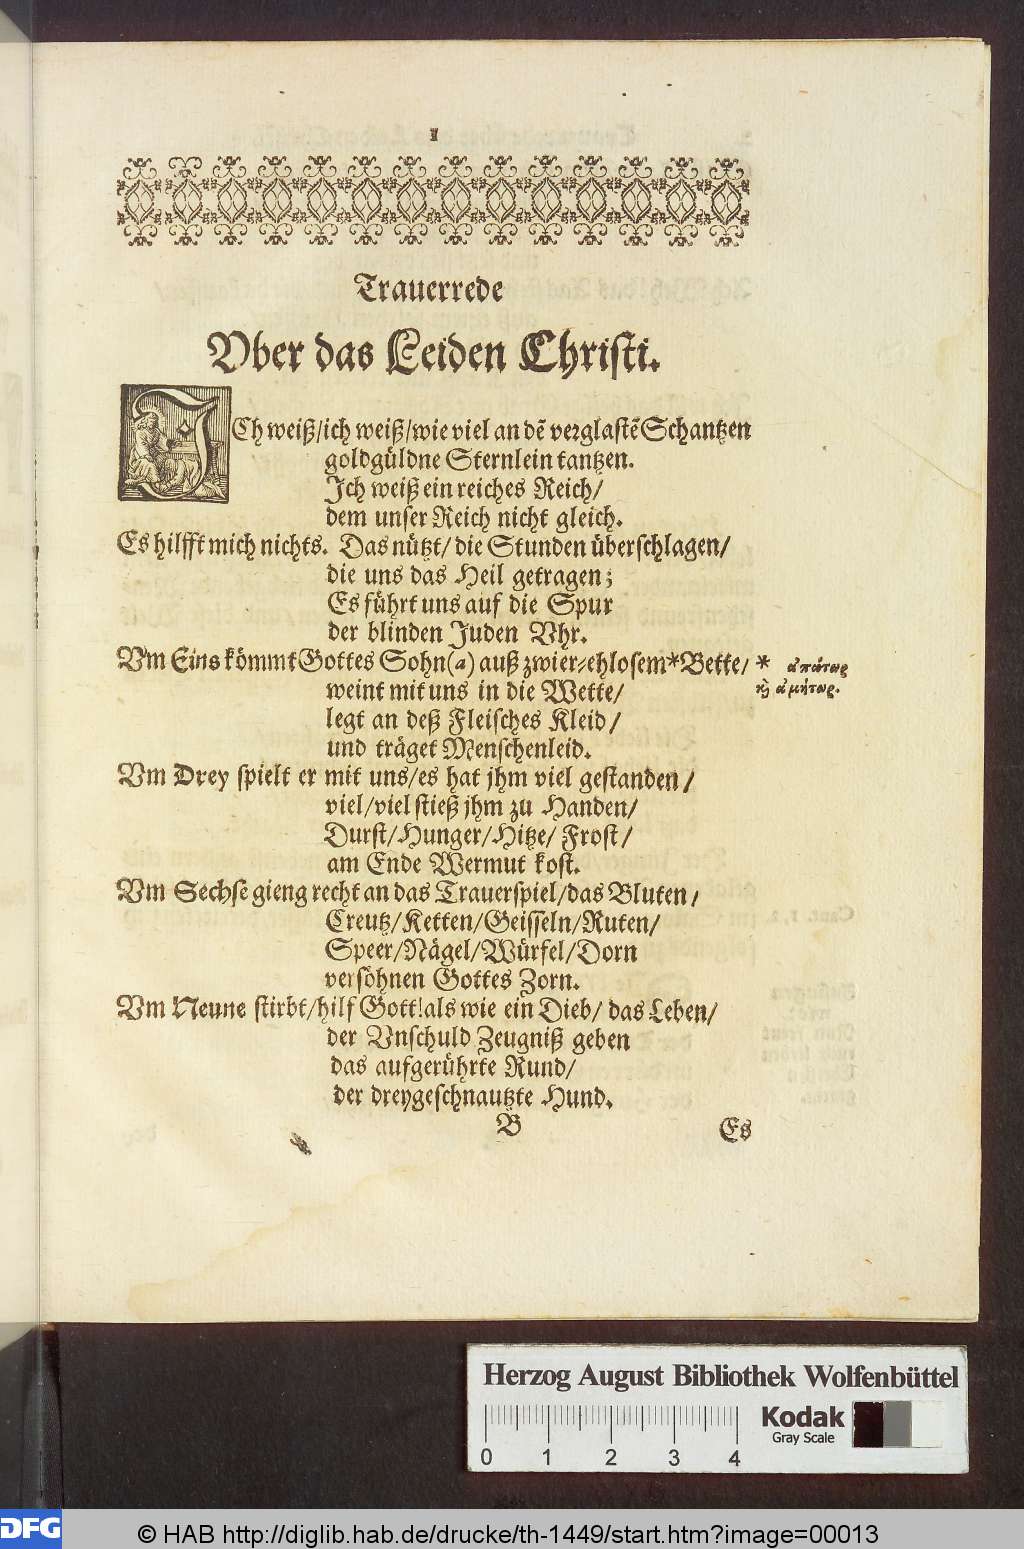 1
Trauerrede
Vber das Leiden Christi.
ICh weiß/ich weiß/wie viel an dẽ verglastẽ Schantzen
goldgüldne Sternlein tantzen.
Ich weiß ein reiches Reich/
dem unser Reich nicht gleich.
Es hilfft mich nichts. Das nützt/ die Stunden überschlagen/
die uns das Heil getragen;
Es führt uns auf die Spur
der blinden Juden Vhr.
Vm Eins kömmt Gottes Sohn(a) auß zwier-ehlosem*Bette/
* ἀπάτωρ
καὶ ἀμήτωρ.
weint mit uns in die Wette/
legt an deß Fleisches Kleid/
und träget Menschenleid.
Vm Drey spielt er mit uns/es hat jhm viel gestanden/
viel/viel stieß jhm zu Handen/
Durst/Hunger/Hitze/ Frost/
am Ende Wermut kost.
Vm Sechse gieng recht an das Trauerspiel/das Bluten/
Creutz/Ketten/Geisseln/Ruten/
Speer/Nägel/Würfel/Dorn
versöhnen Gottes Zorn.
Vm Neune stirbt/hilf Gott!als wie ein Dieb/ das Leben/
der Vnschuld Zeugniß geben
das aufgerührte Rund/
der dreygeschnautzte Hund.
B
Es
Herzog August Bibliothek Wolfenbüttel
Kodak
Gray Scale
0 1 2 3 4
DFG
© HAB http://diglib.hab.de/drucke/th-1449/start.htm?image=00013